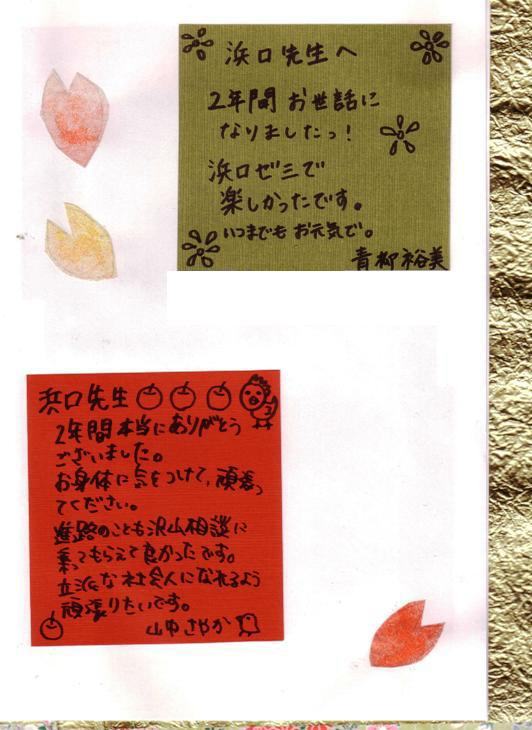 浜口先生へ
2年間お世話に
なりましたっ！
浜口ゼミで
楽しかったです。
いつまでもお元気で。
青柳裕美
浜口先生
2年間本当にありがとう
ございました。
お身体に気をつけて，頑張っ
てください。
進路のことも沢山相談に
乗ってもらえて良かったです。
立派な社会人になれるよう
頑張りたいです。
山中さやか